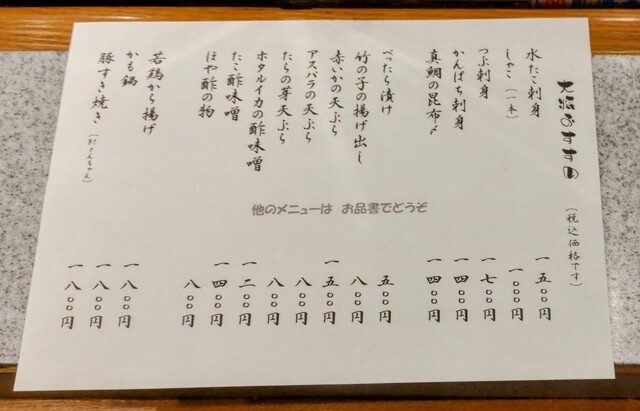 おすすめ（税込価格です）
水たこ刺身 一五〇〇円
しゃこ（一本） 一〇〇〇円
つぶ刺身 一七〇〇円
かんぱち刺身 一四〇〇円
真鯛の昆布〆 一四〇〇円
べったら漬け 五〇〇円
竹の子の揚げ出し 八〇〇円
赤いかの天ぷら 一五〇〇円
アスパラの天ぷら 八〇〇円
たらの芽天ぷら 八〇〇円
ホタルイカの酢味噌 一二〇〇円
たこ酢味噌 一四〇〇円
ほや酢の物 八〇〇円
若鶏から揚げ 一八〇〇円
かも鍋 一八〇〇円
豚すき焼き 一八〇〇円
他のメニューは お品書でどうぞ